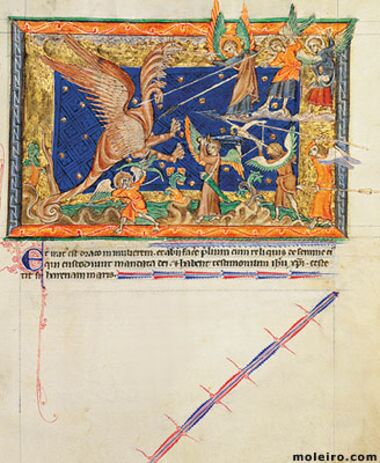 Et iratus est draco in mulierem. et abiit facere plium cum reliquis de semine ei
qui custodiunt mandata dei. & habent testimonium ihu xpi. et ste
tit super harenam maris.
moleiro.com